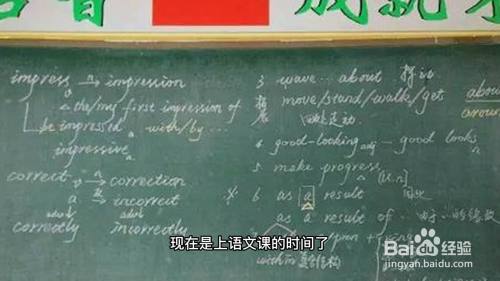 成就
impress n impression
the/my first impression of
be impressed with/by ...
impressive a
correct n correction
a incorrect
adv adv
correctly incorrectly
3 wave ... about 挥动
move/stand/walk/get about
aroun
4 good-looking adj good looks n
5 make progress [U.n]
※ 6 as a result
as a result of
现在是上语文课的时间了
Baidu 经验
jingyan.baidu.com